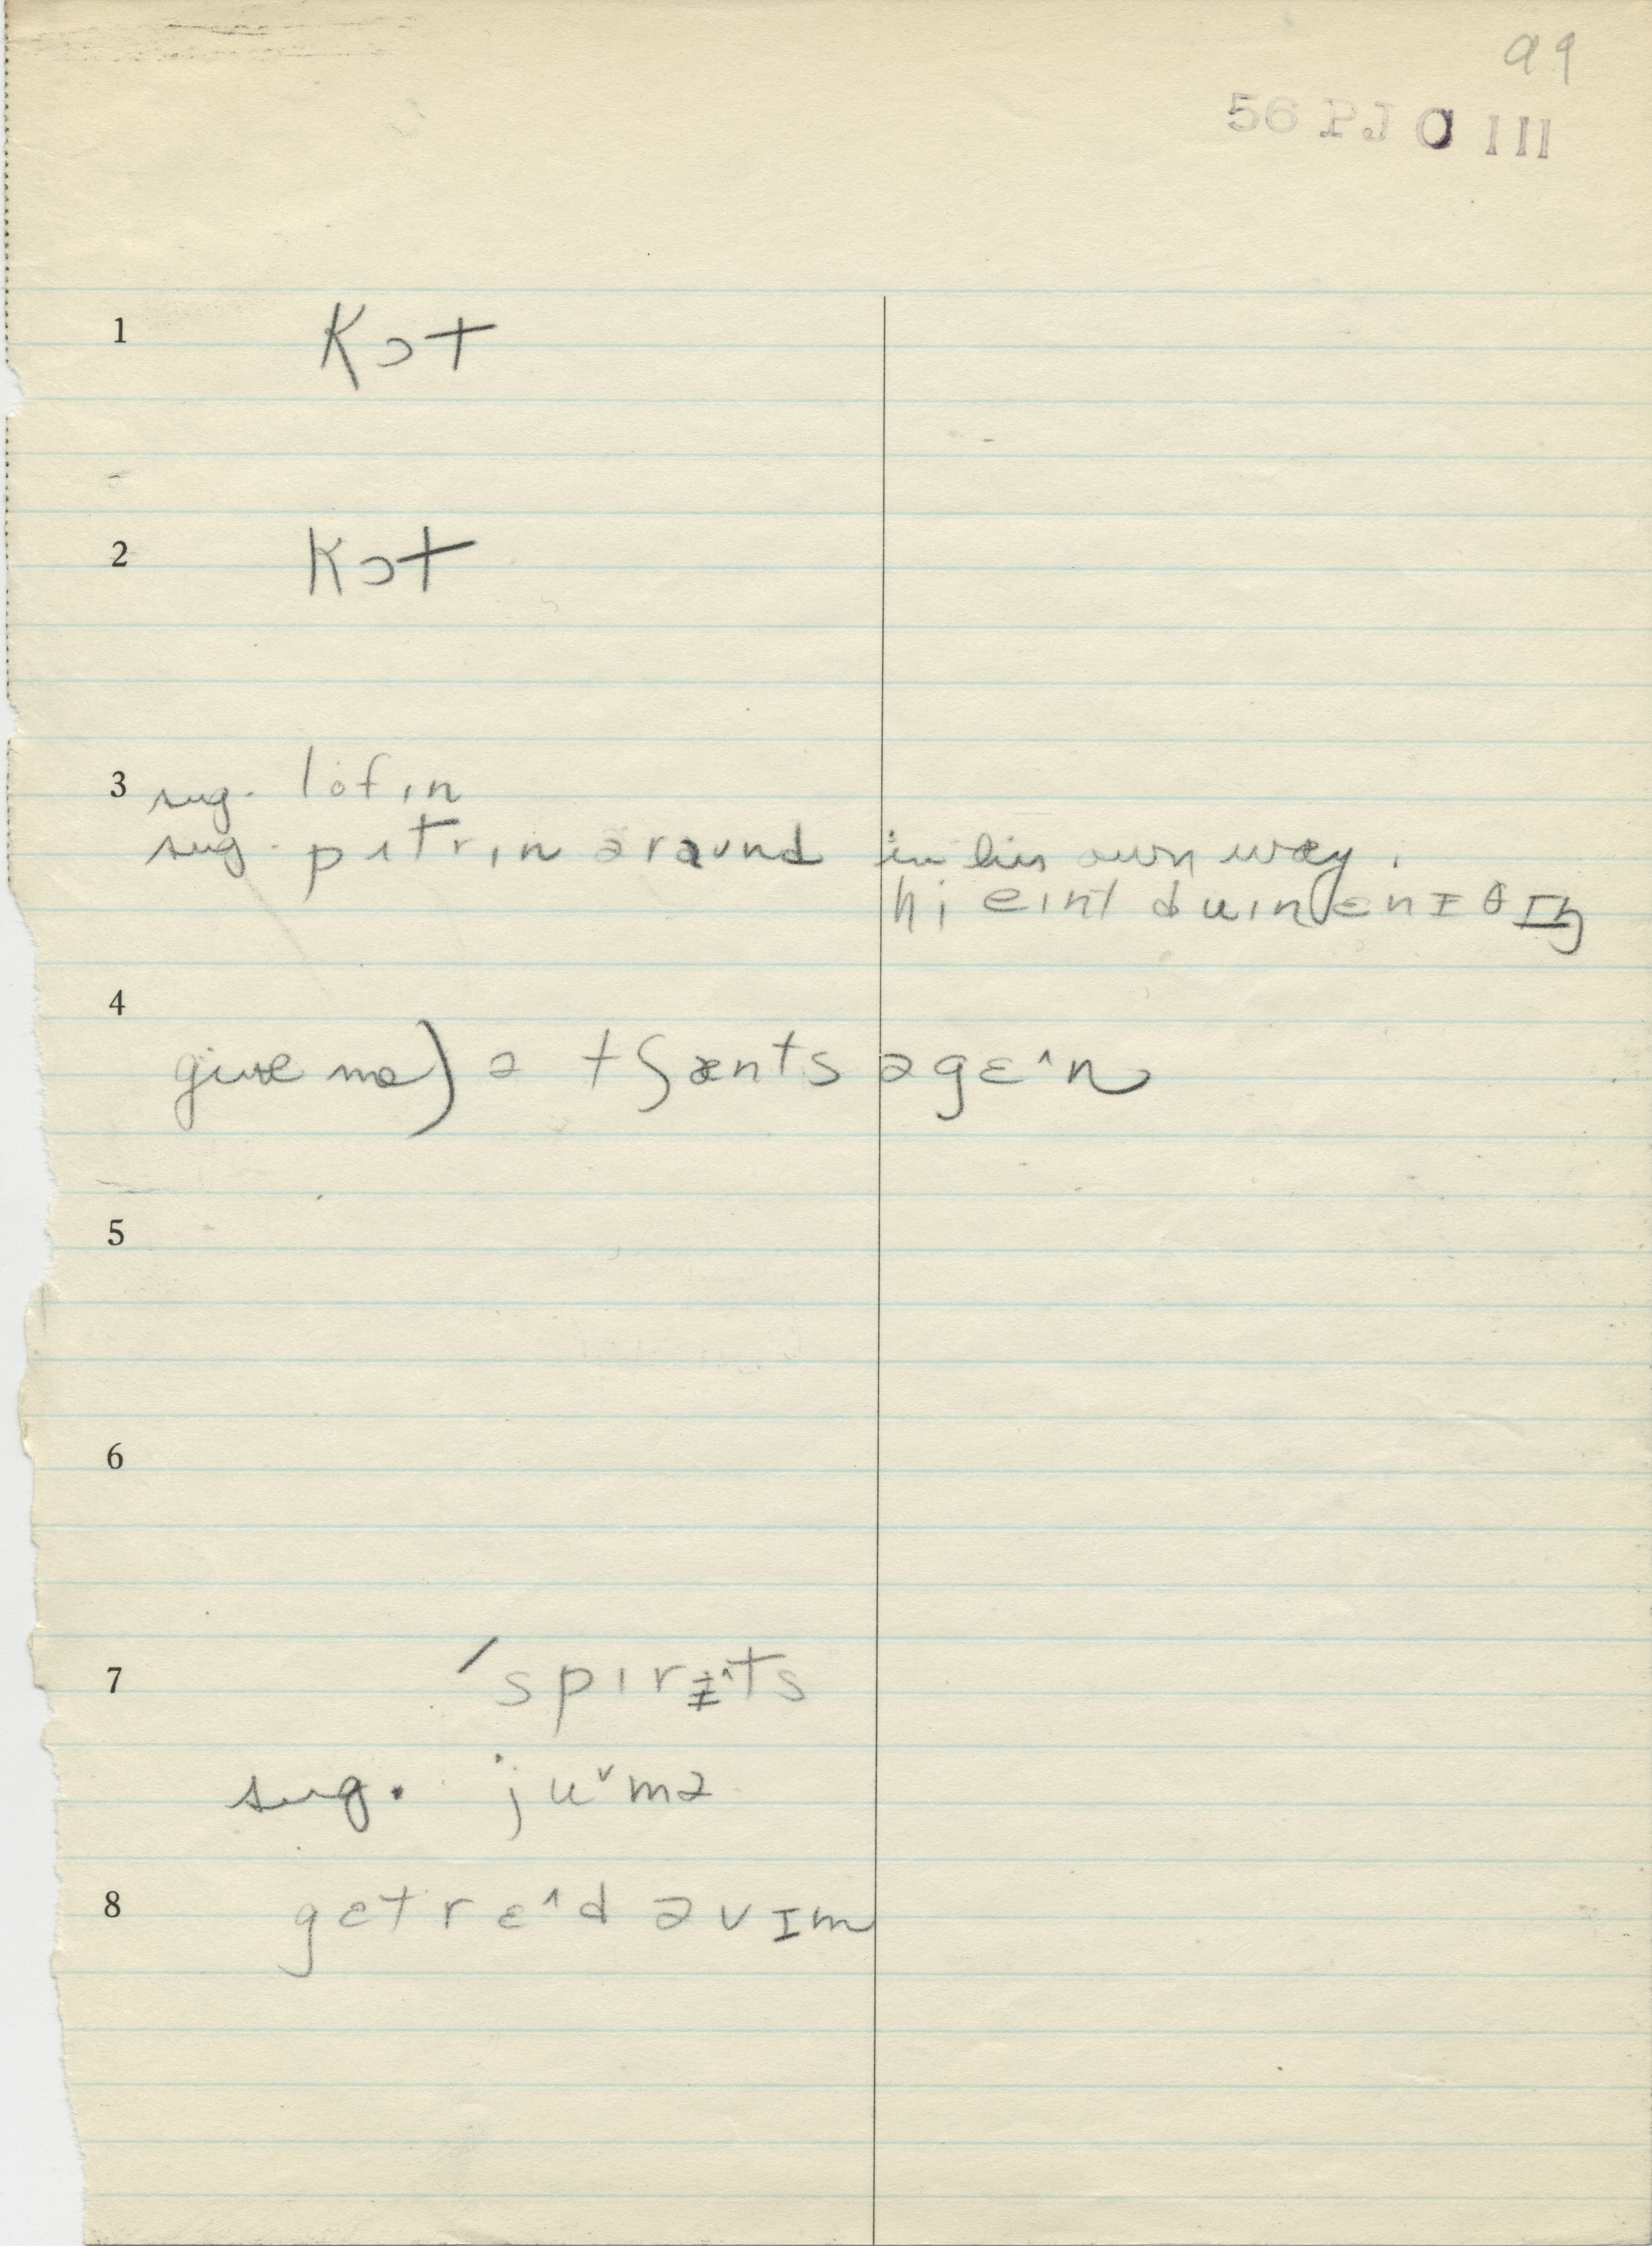 99
56 PJ O III
1 kɔt
2 kɔt
3 sug. lofɪn
sug. pɪtrɪn əraʊnd in his own way.
hi eɪnt duɪn ɛnɪθɪŋ
4
give me) ə tʃænts əgɛ^n
5
6
7 ′spɪrɨ^ts
sug. juᵛmə
8 gɛt rɛ^d əvɪm